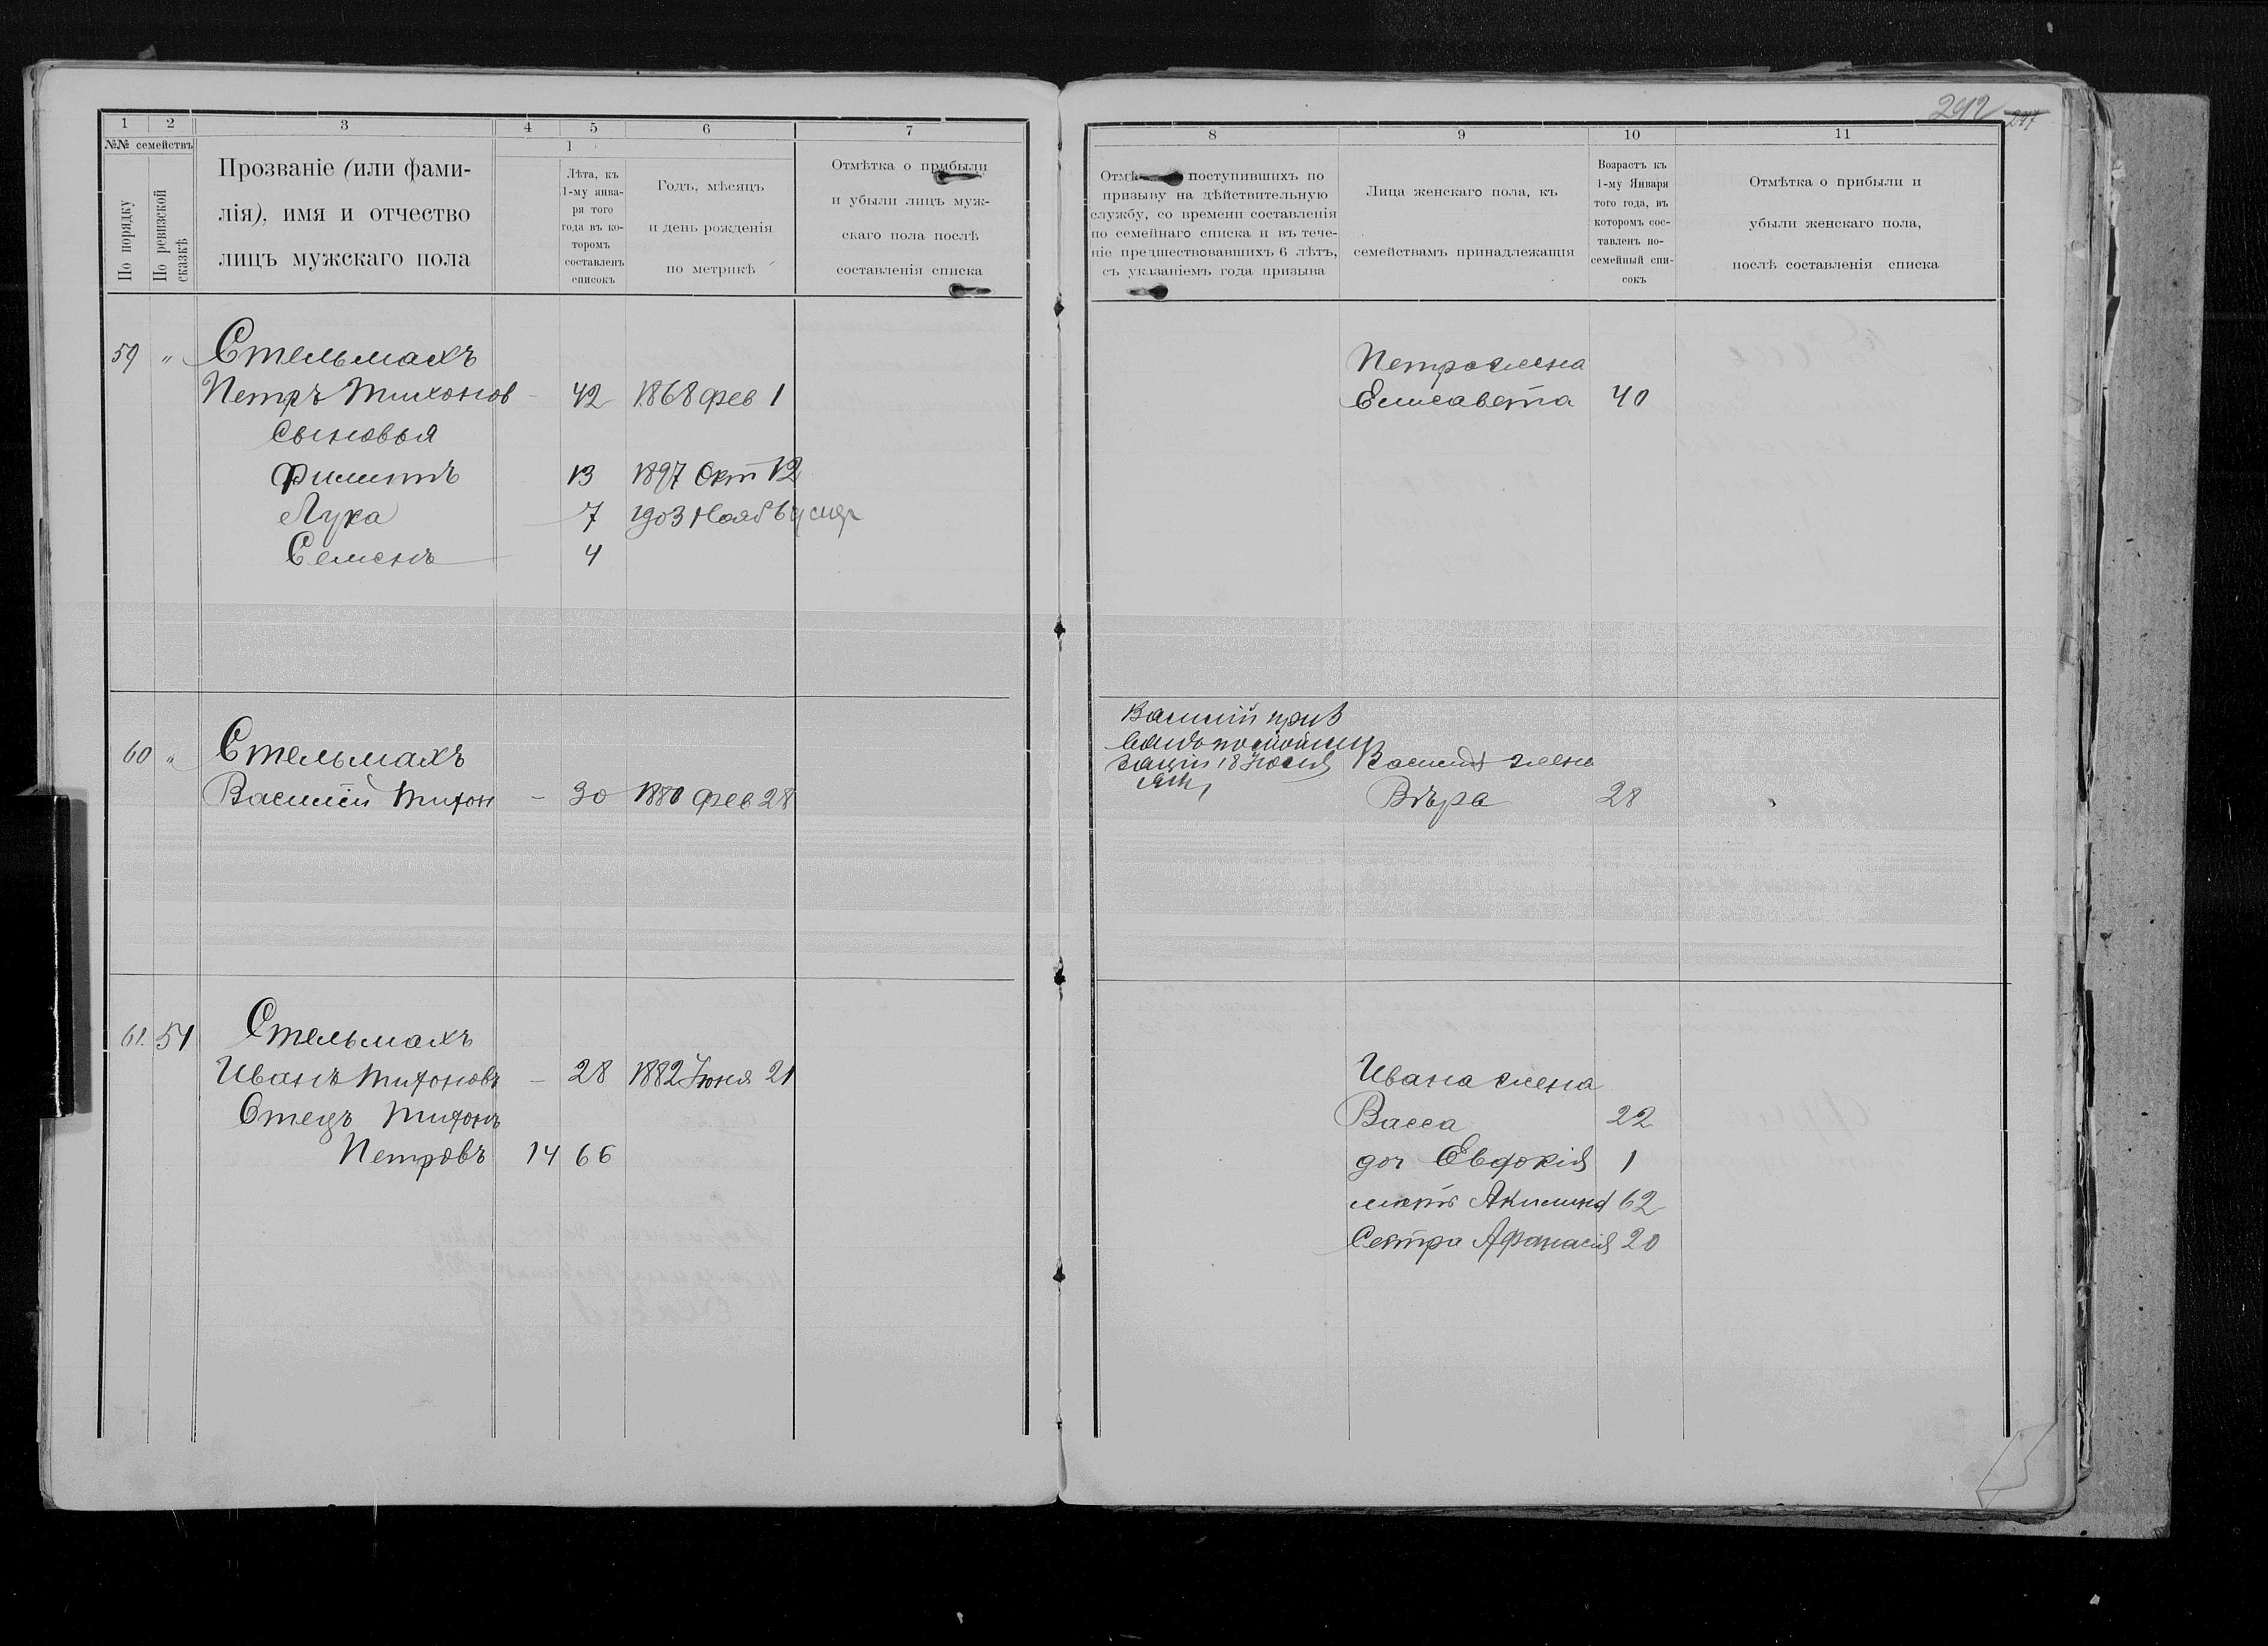 292 247
1 2 3 4 5 6 7
№№ семействъ
По порядку
По ревизской сказкѣ
Прозваніе (или фами-
лія), имя и отчество
лицъ мужскаго пола
1
Лѣта, къ
1-му янва-
ря того
года въ ко-
торомъ
составленъ
списокъ
Годъ, мѣсяцъ
и день рожденія
по метрикѣ
Отмѣтка о прибыли
и убыли лицъ муж-
скаго пола послѣ
составленія списка
59 " Стельмахъ
Петръ Тихонов - 42 1868 фев 1
Сыновья
Филиппъ 13 1897 Окт 12
Лука 7 1903 Нояб
Семенъ 4
60 " Стельмахъ
Василій Тихон - 30 1880 фев 28
61. 51 Стельмахъ
Иванъ Тихоновъ - 28 1882 Іюня 21
Отецъ Тихонъ
Петровъ 14 66
8 9 10 11
поступившихъ по
призыву на дѣйствительную
службу, со времени составленія
по семейнаго списка и въ тече-
ніе предшествовавшихъ 6 лѣтъ,
съ указаніемъ года призыва
Лица женскаго пола, къ
семействамъ принадлежащія
Возрастъ къ
1-му Января
того года, въ
которомъ сос-
тавленъ по-
семейный спи-
сокъ
Отмѣтка о прибыли и
убыли женскаго пола,
послѣ составленія списка
Петра жена
Елисавета 40
Василій приз
18 Іюля
Василія жена
Вѣра 28
Ивана жена
Васса 22
доч Евдокія 1
мать Акилина 62
Сестра Афанасія 20